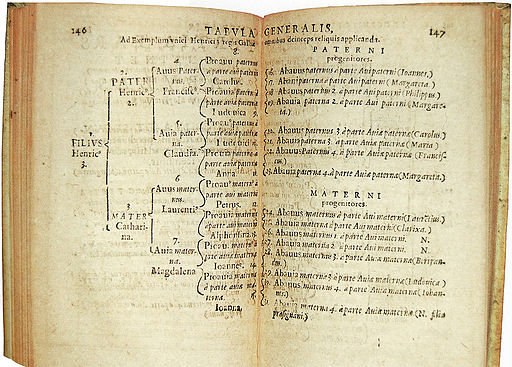 146
TABVLA
Ad Exemplum vnici Henrici 3 regis Galliæ
8.
4. Proauus paternus
Auus Pater-
nus.
à parte aui paterni
2. Carolus.
PATER 9.
Henric⁹ Francisc⁹. Proauia paterna
2. parte aui paterni
Ludouica
5.
Auia pater- parte auiæ paternæ
1. na. Ludouic⁹
FILIVS Claudia.
Henric⁹ Proauia paterna
parte auiæ paternæ
Anna
6. Proau⁹ matern⁹ à
Auus mater- parte aui materni
nus. Petrus.
3 Laurenti⁹ Proauia materna
MATER à parte aui materni
Cathari-
na. 7.
Auia mater- à parte auiæ materna
na. Ioannes.
Magdalena Proauia materna
à parte auiæ ma-
terna.
Ioanna.
GENERALIS, 147
omnibus deinceps reliquis applicanda.
PATERNI
progenitores.
16. Abauus paternus à parte Aui paterni (Ioannes.)
17. Abauia paterna à parte Aui paterni (Margareta)
18. Abauus paternus 2. à parte Aui paterni (Philippus.)
19. Abauia paterna 2. à parte Aui paterni (Margare-
ta.)
20. Abauus paternus 3 à parte Auiæ paternæ (Carolus)
21. Abauia paterna 3. à parte Auiæ paternæ (Maria)
22. Abauus paternus 4. à parte Auiæ paternæ (Francis-
cus.)
23. Abauia paterna 4. à parte Auiæ paternæ (Margareta.)
MATERNI
progenitores.
24. Abauus maternus à parte Aui materni
25. Abauia materna à parte Aui materni (Clarissa.)
26. Abauus maternus 2. à parte Aui materni. N.
27. Abauia materna 2. à parte Aui materni. N.
28. Abauus maternus 3. à parte Auiæ maternæ (Bertran-
29. Abauia materna 3 à parte Auiæ maternæ
30. Abauus maternus 4. à parte Auiæ maternæ (Iohan-
31. Abauia materna 4. à parte Auiæ maternæ (N. filia